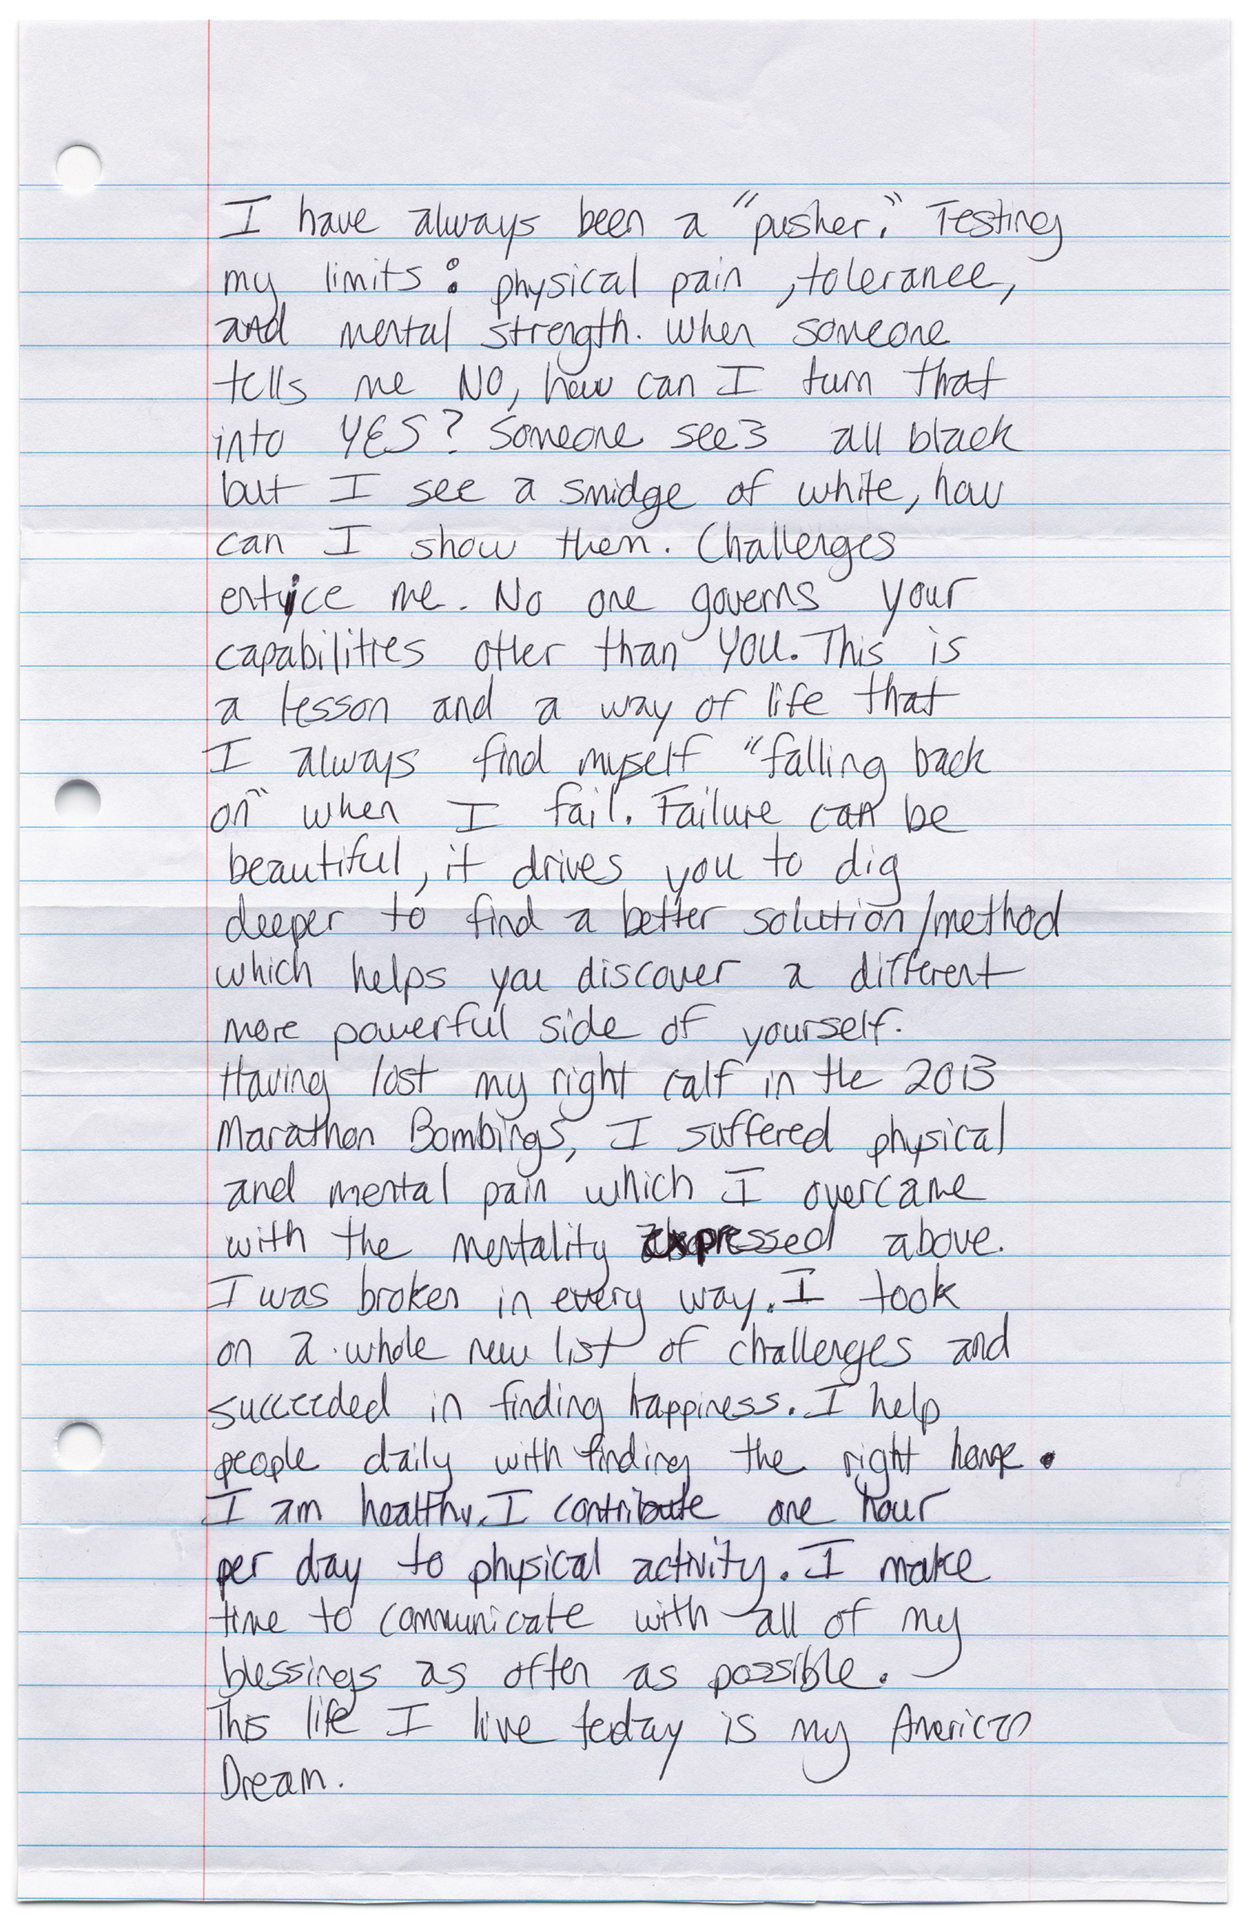 I have always been a "pusher." Testing
my limits: physical pain, tolerance,
and mental strength. When someone
tells me NO, how can I turn that
into YES? Someone sees all black
but I see a smidge of white, how
can I show them. Challenges
entice me. No one governs your
capabilities other than YOU. This is
a lesson and a way of life that
I always find myself "falling back
on" when I fail. Failure can be
beautiful, it drives you to dig
deeper to find a better solution/method
which helps you discover a different
more powerful side of yourself.
Having lost my right calf in the 2013
Marathon Bombings, I suffered physical
and mental pain which I overcame
with the mentality expressed above.
I was broken in every way. I took
on a whole new list of challenges and
succeeded in finding happiness. I help
people daily with finding the right home.
I am healthy. I contribute one hour
per day to physical activity. I make
time to communicate with all of my
blessings as often as possible.
This life I live today is my American
Dream.